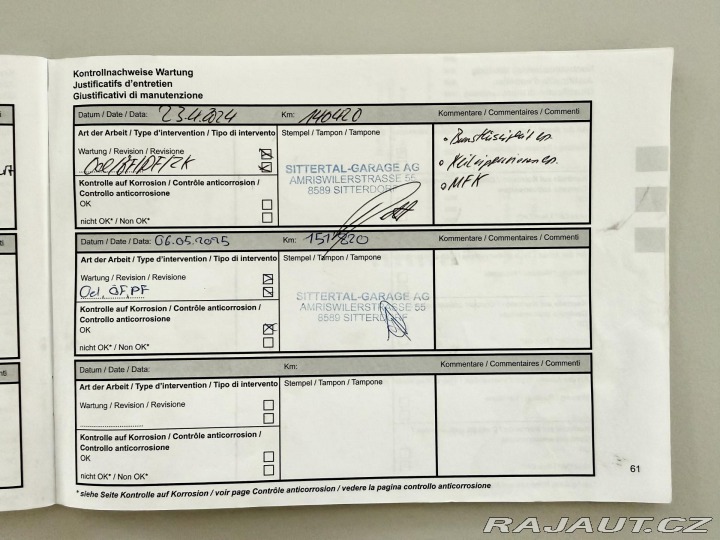 Kontrollnachweise Wartung
Justificatifs d'entretien
Giustificativi di manutenzione
Datum / Date / Data: 23.4.2024 Km: 140420 Kommentare / Commentaires / Commenti
Art der Arbeit / Type d'intervention / Tipo di intervento Stempel / Tampon / Tampone
Wartung / Revision / Revisione
Oel/ÖF/PF/ZK
Kontrolle auf Korrosion / Contrôle anticorrosion /
Controllo anticorrosione
OK
nicht OK* / Non OK*
SITTERTAL-GARAGE AG
AMRISWILERSTRASSE 55
8589 SITTERDORF
MFK
Datum / Date / Data: 06.05.2025 Km: Kommentare / Commentaires / Commenti
Art der Arbeit / Type d'intervention / Tipo di intervento Stempel / Tampon / Tampone
Wartung / Revision / Revisione
Oel, ÖF, PF
Kontrolle auf Korrosion / Contrôle anticorrosion /
Controllo anticorrosione
OK
nicht OK* / Non OK*
SITTERTAL-GARAGE AG
AMRISWILERSTRASSE 55
8589 SITTERDORF
Datum / Date / Data: Km: Kommentare / Commentaires / Commenti
Art der Arbeit / Type d'intervention / Tipo di intervento Stempel / Tampon / Tampone
Wartung / Revision / Revisione
Kontrolle auf Korrosion / Contrôle anticorrosion /
Controllo anticorrosione
OK
nicht OK* / Non OK*
* siehe Seite Kontrolle auf Korrosion / voir page Contrôle anticorrosion / vedere la pagina controllo anticorrosione
61
RAJAUT.CZ